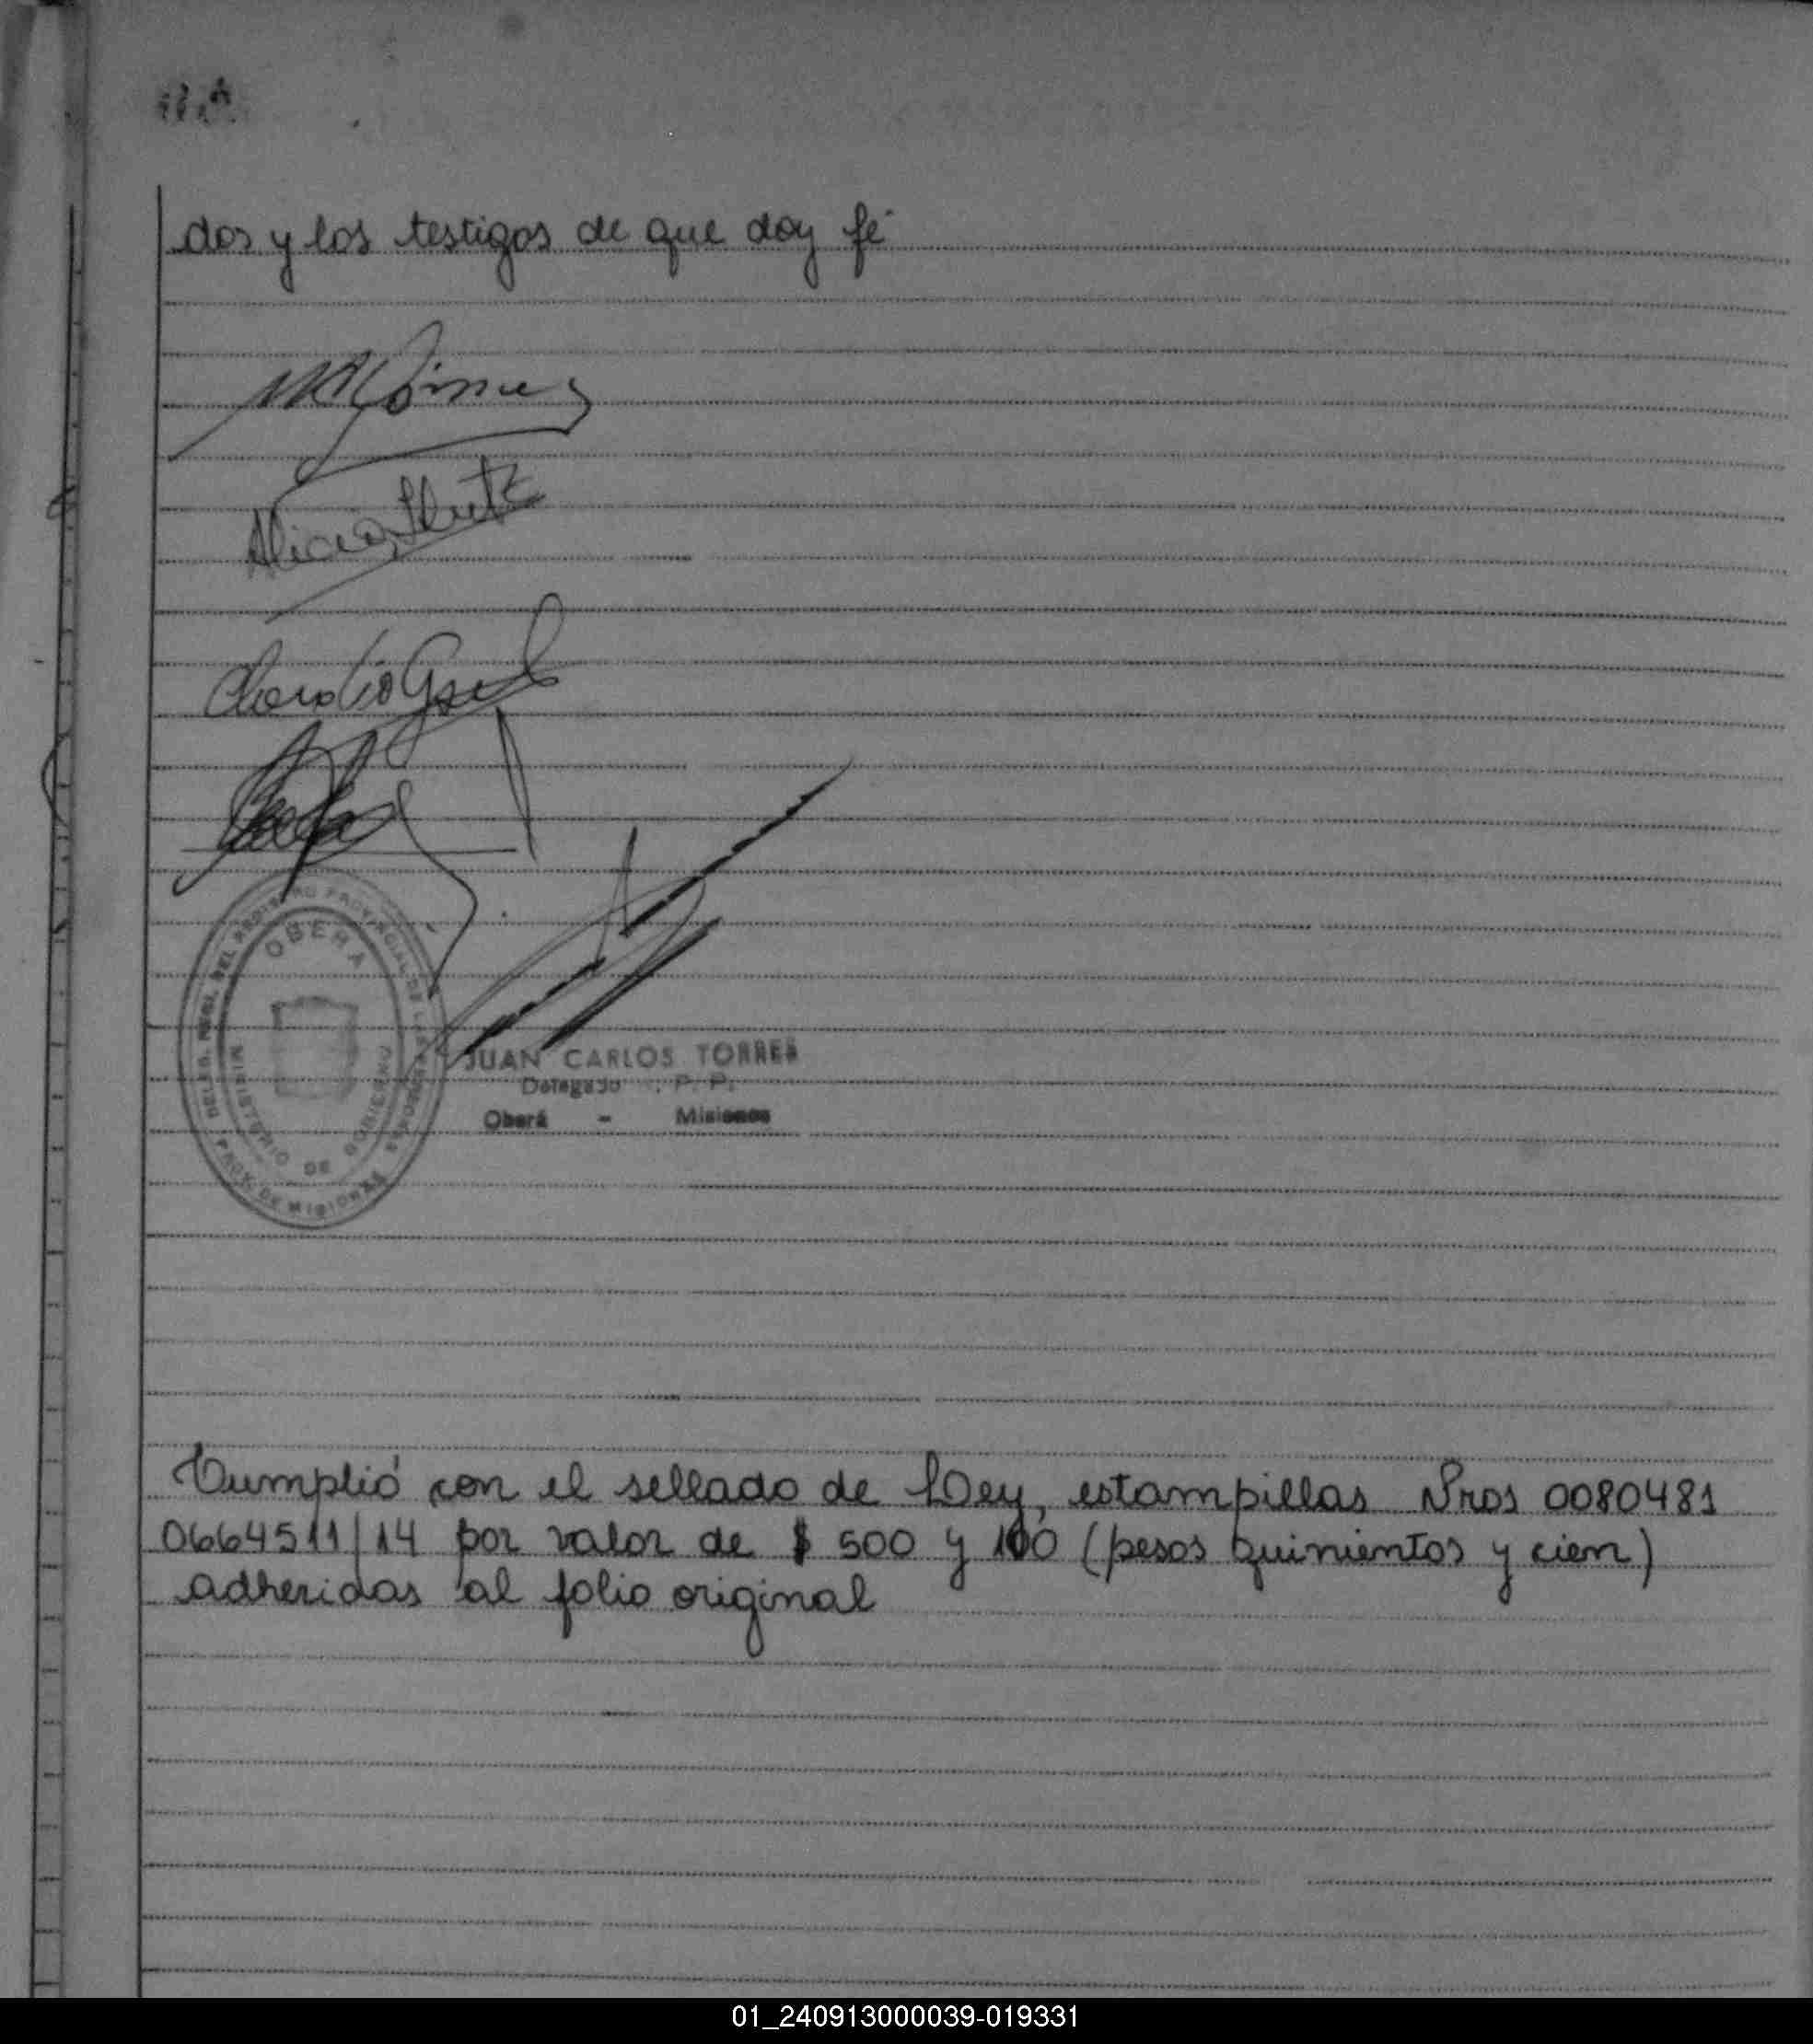 dos y los testigos de que doy fé
Alicia
OBERA
MINISTERIO DE GOBIERNO
PROV. DE MISIONES
JUAN CARLOS TORRES
Delegado R. P. P.
Oberá - Misiones
Cumplió con el sellado de Ley, estampillas Nros 0080481
0664511/14 por valor de $ 500 y 100 (pesos quinientos y cien)
adheridas al folio original
01_240913000039-019331